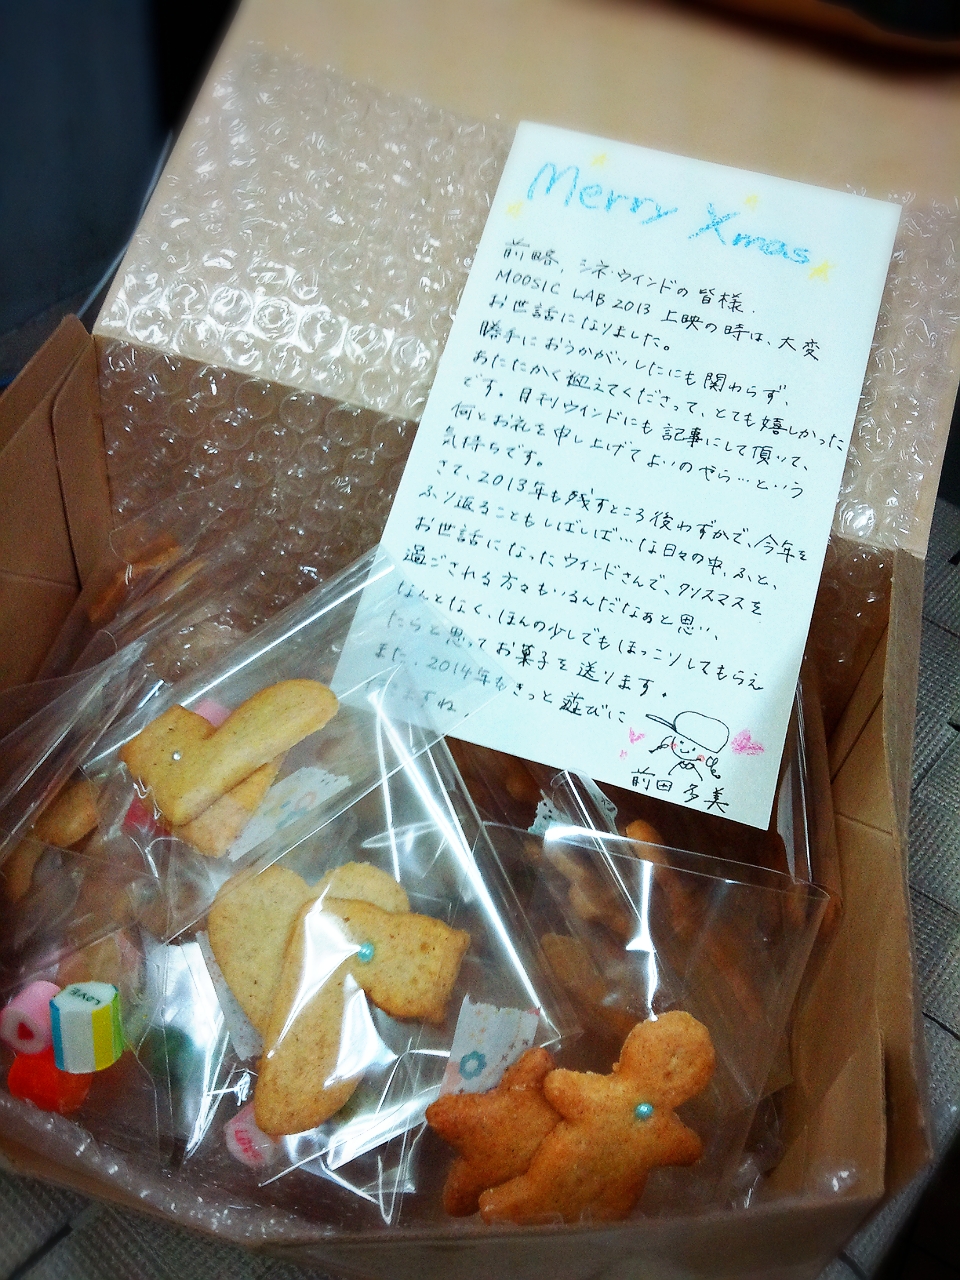 Merry Xmas
前略、シネ・ウインドの皆様.
MOOSIC LAB 2013 上映の時は、大変
お世話になりました。
勝手におうかがいしたにも関わらず、
あたたかく迎えてくださって、とても嬉しかった
です。月刊ウインドにも記事にして頂いて、
何とお礼を申し上げてよいのやら…という
気持ちです。
さて、2013年も残すところ後わずかで、今年を
ふり返ることもしばしば…な日々の中、ふと、
お世話になったウインドさんで、クリスマスを
過ごされる方々もいるんだなぁと思い、
なんとなく、ほんの少しでもほっこりしてもらえ
たらと思ってお菓子を送ります。
また、2014年もきっと遊びに
きますね.
前田多美
LOVE
LOVE